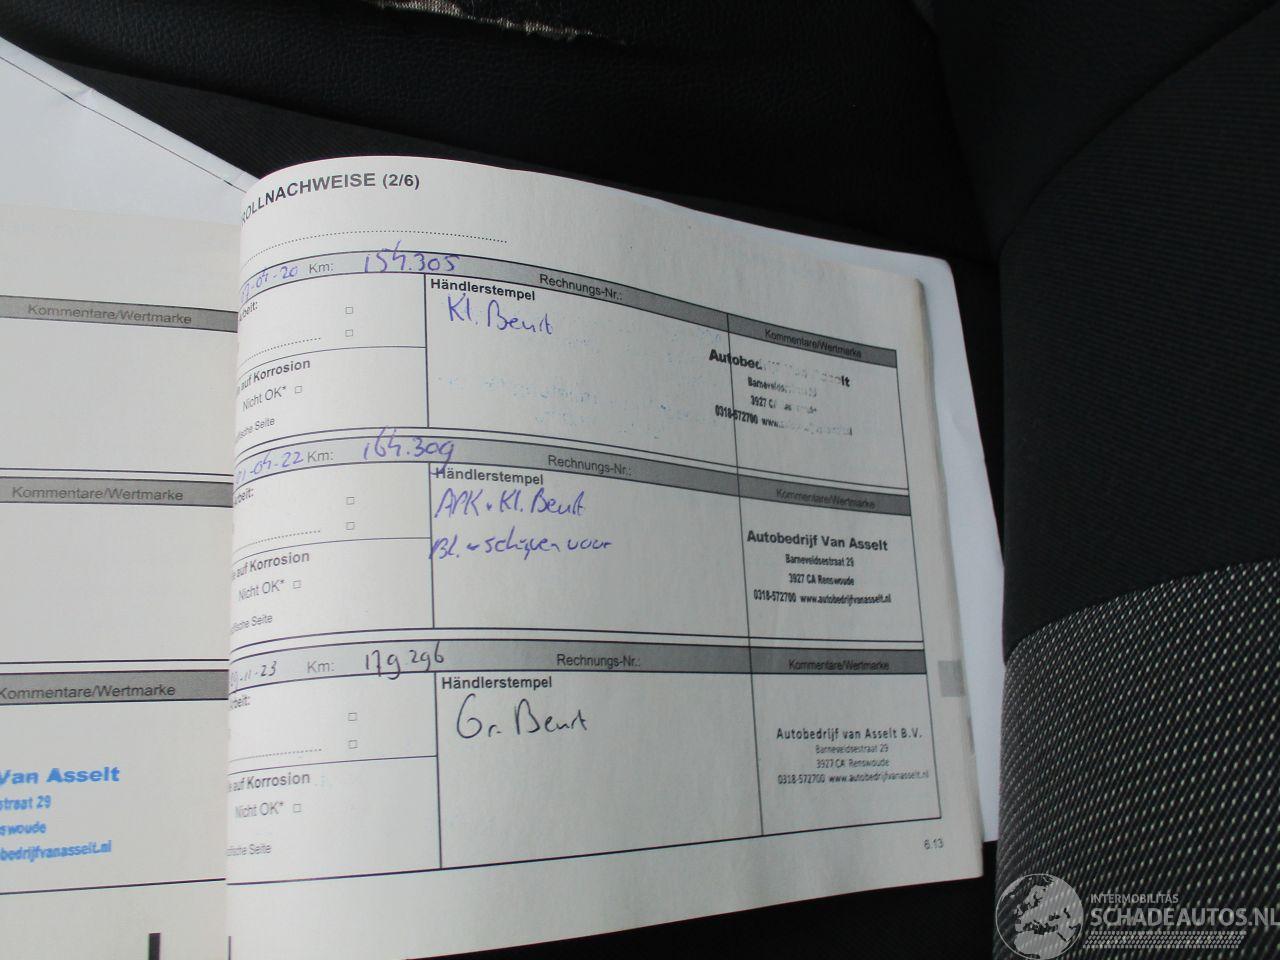 ROLLNACHWEISE (2/6)
-04-20 Km: 154.305 Rechnungs-Nr.:
Händlerstempel
Kl. Beurt
Kommentare/Wertmarke
beit:
auf Korrosion
Nicht OK*
fische Seite
Autobedrijf Van Asselt
Barneveldsestraat 29
3927 CA
0318-572700 www.
01-04-22 Km: 164.309 Rechnungs-Nr.:
Händlerstempel
APK + Kl. Beurt
Bl. + schijven voor
Kommentare/Wertmarke
beit:
auf Korrosion
Nicht OK*
fische Seite
Autobedrijf Van Asselt
Barneveldsestraat 29
3927 CA Renswoude
0318-572700 www.autobedrijfvanasselt.nl
-11-23 Km: 179.296 Rechnungs-Nr.:
Händlerstempel
Gr. Beurt
Kommentare/Wertmarke
beit:
auf Korrosion
Nicht OK*
fische Seite
Autobedrijf van Asselt B.V.
Barneveldsestraat 29
3927 CA Renswoude
0318-572700 www.autobedrijfvanasselt.nl
6.13
Kommentare/Wertmarke
Kommentare/Wertmarke
Kommentare/Wertmarke
Van Asselt
straat 29
nswoude
bedrijfvanasselt.nl
INTERMOBILITAS
SCHADEAUTOS.NL